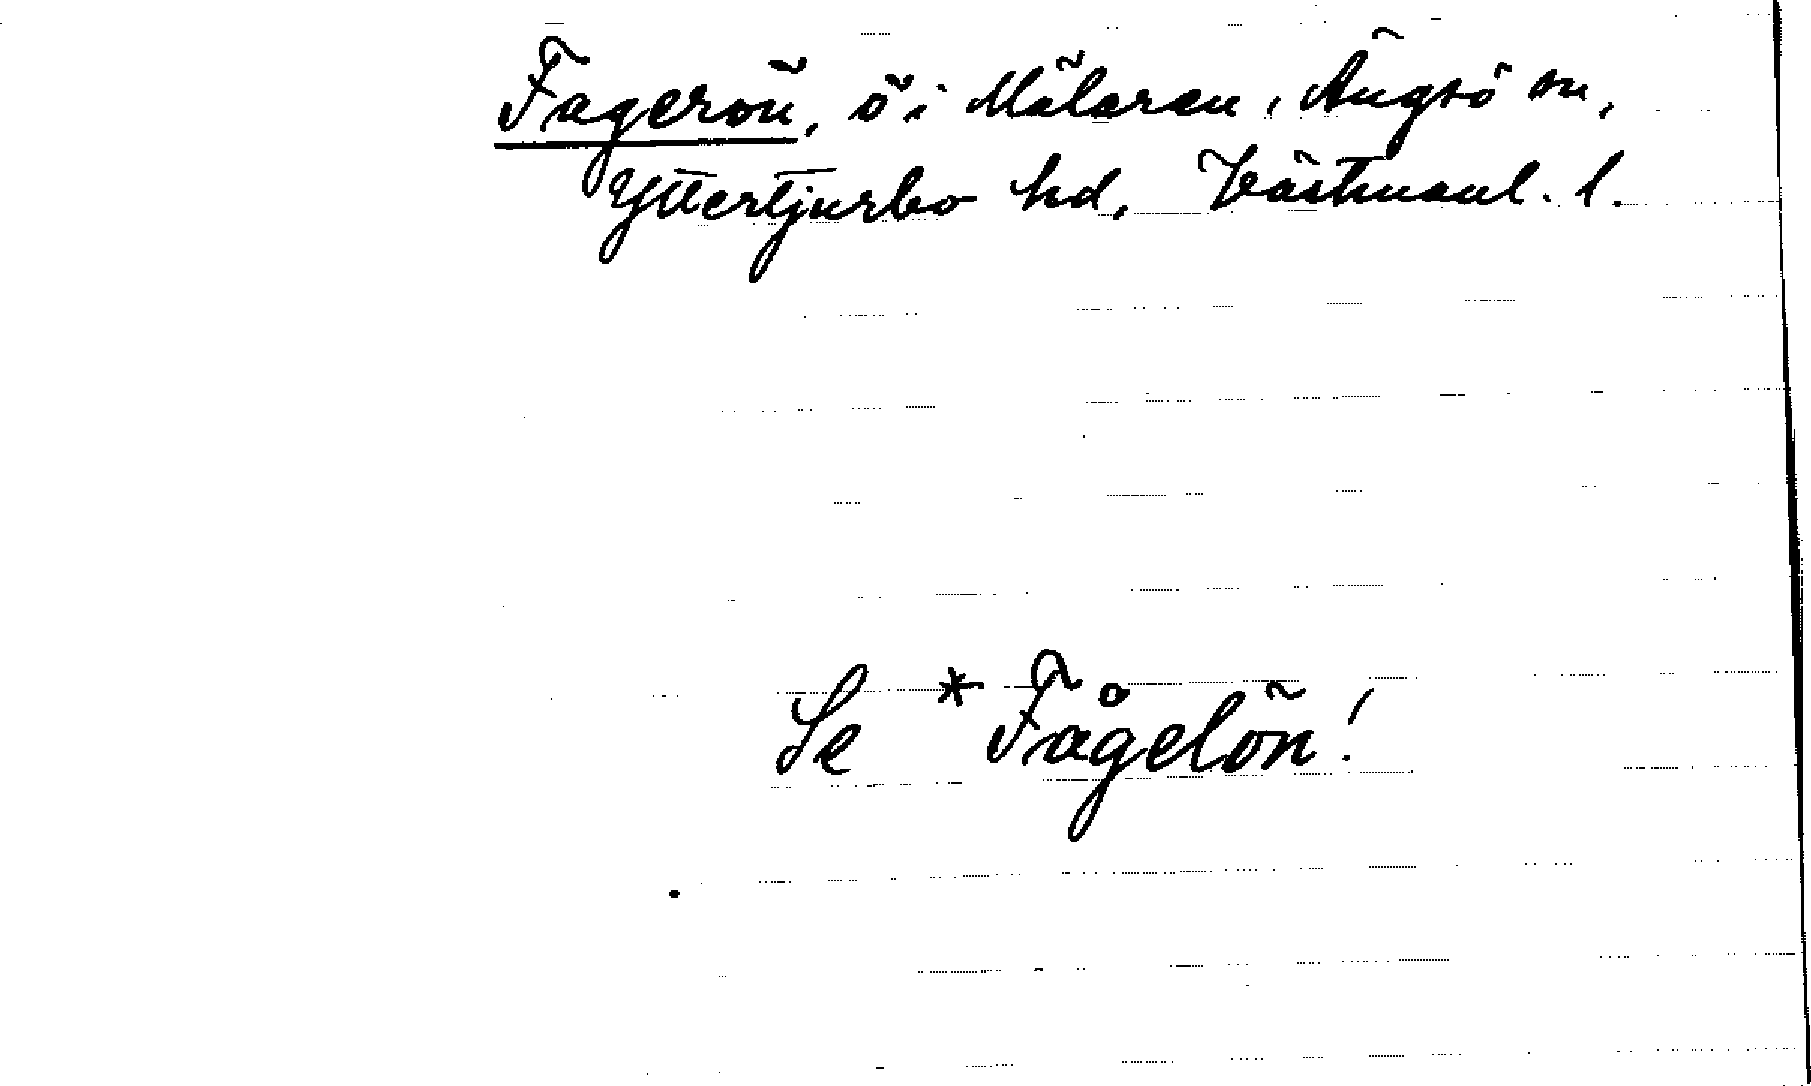 Fagerön, ö i Mälaren, Ängsö sn,
Yttertjurbo hd, Västmanl. l.
Se *Fågelön!